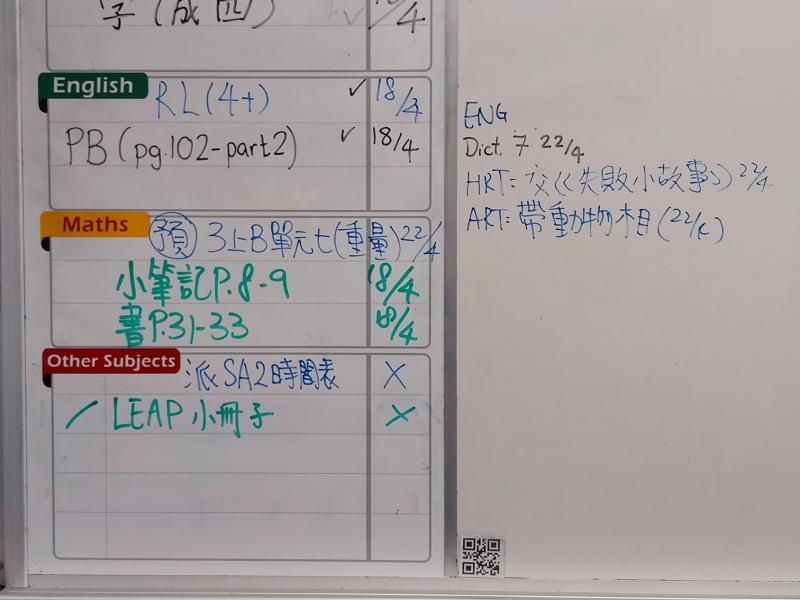 字(成四)
English
RL(4+) ✓ 18/4
PB(pg.102-part2) ✓ 18/4
Maths
預 3上B單元七(重量) 22/4
小筆記P.8-9 18/4
書P.31-33 18/4
Other Subjects
派SA2時間表 X
/ LEAP 小冊子 X
ENG
Dict. 7 22/4
HRT: 交《失敗小故事》 22/4
ART: 帶動物相(22/4)